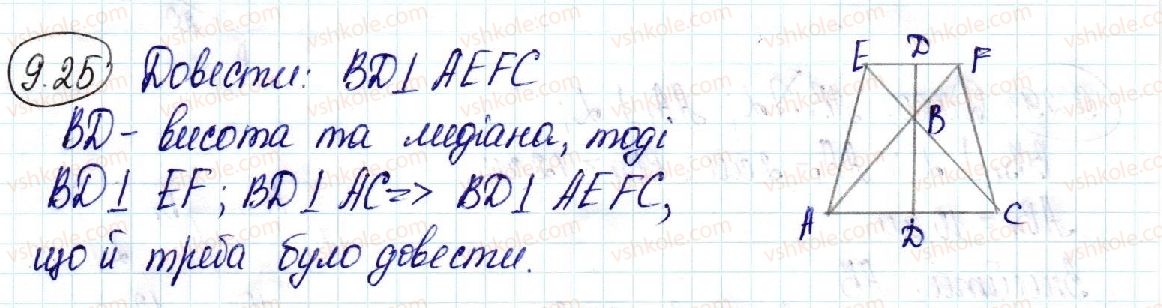 9.25 Довести: BD⊥ AEFC
BD - висота та медіана, тоді
BD⊥ EF; BD⊥ AC => BD⊥ AEFC,
що й треба було довести.
E D F
B
A D C
vshkole.com